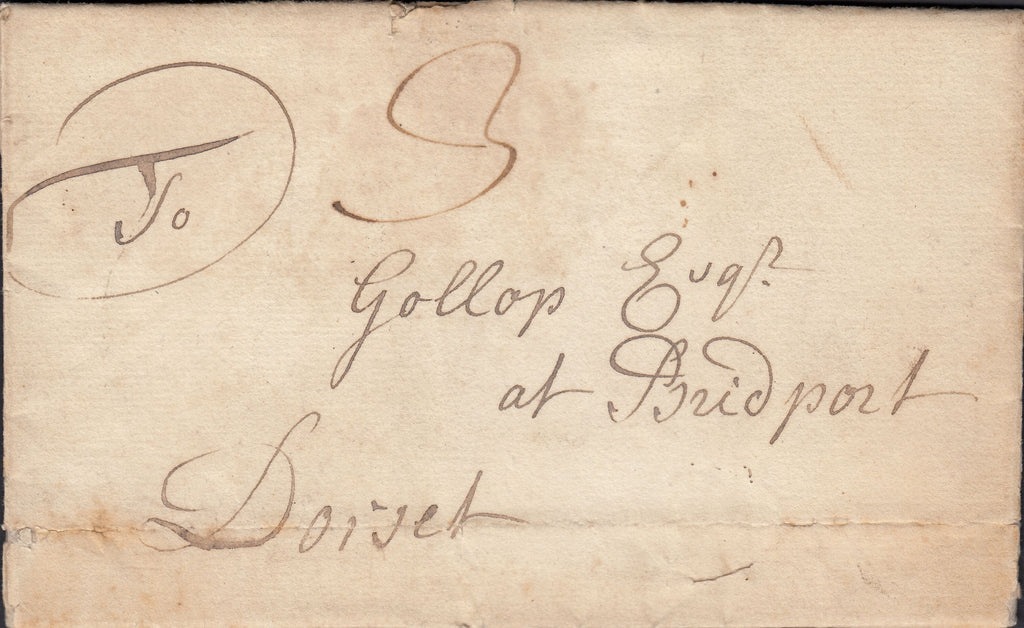 3
To
Gollop Esqr.
at Bridport
Dorset